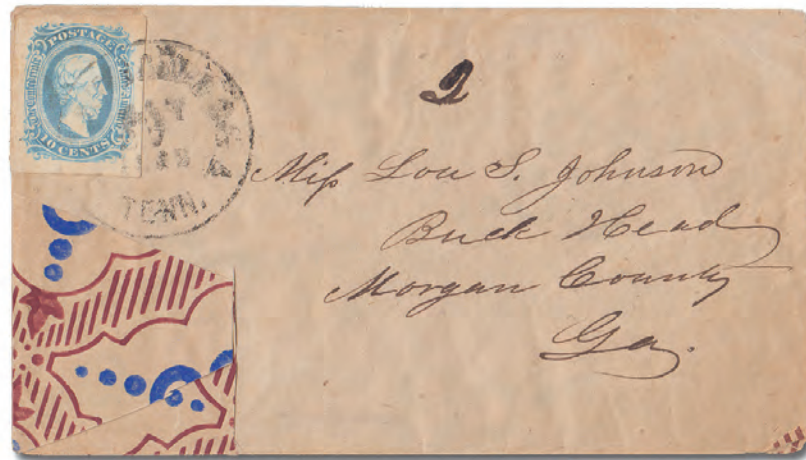 POSTAGE
10 CENTS
TENN.
2
Miſs Lou S. Johnson
Buck Head
Morgan County
Ga.